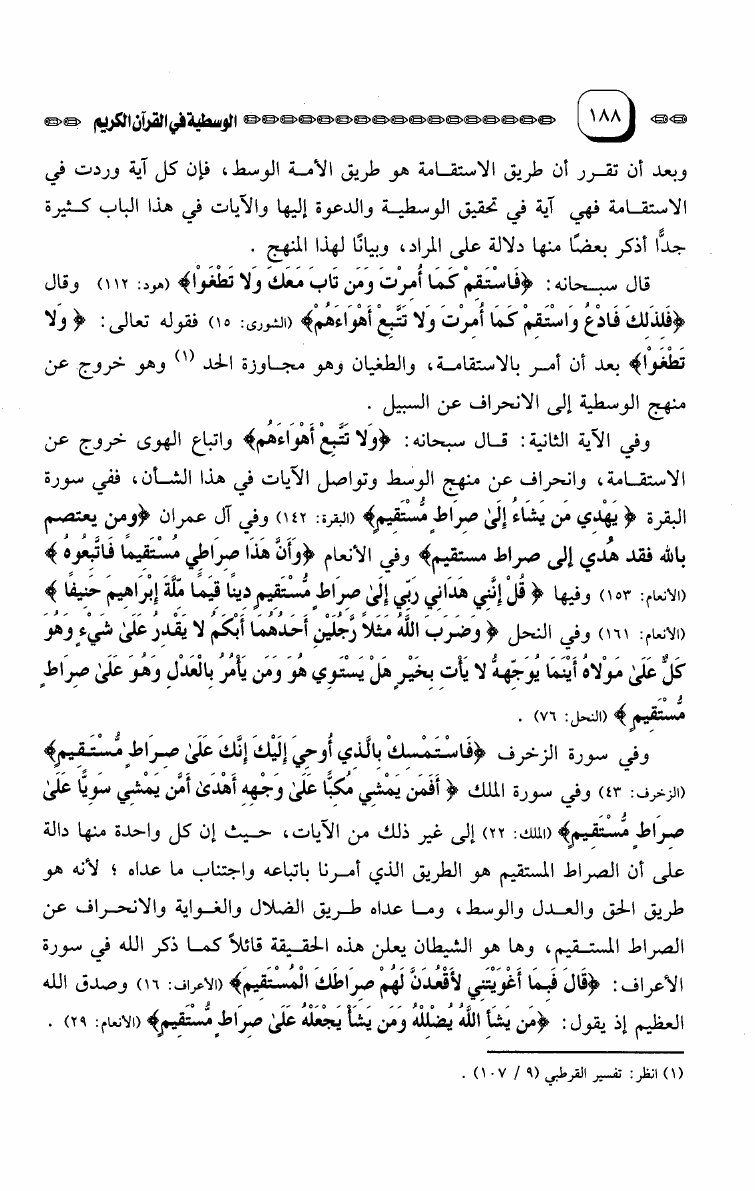 ١٨٨ الوسطية في القرآن الكريم
وبعد أن تقرر أن طريق الاستقامة هو طريق الأمة الوسط، فإن كل آية وردت في
الاستقامة فهي آية في تحقيق الوسطية والدعوة إليها والآيات في هذا الباب كثيرة
جدًّا أذكر بعضًا منها دلالة على المراد، وبيانًا لهذا المنهج .
قال سبحانه: ﴿فَاسْتَقِمْ كَمَا أُمِرْتَ وَمَن تَابَ مَعَكَ وَلا تَطْغَوْا﴾ (هود: ١١٢) وقال
﴿فَلِذَلِكَ فَادْعُ وَاسْتَقِمْ كَمَا أُمِرْتَ وَلا تَتَّبِعْ أَهْوَاءَهُمْ﴾ (الشورى: ١٥) فقوله تعالى: ﴿ وَلا
تَطْغَوْا﴾ بعد أن أمر بالاستقامة، والطغيان وهو مجاوزة الحد (١) وهو خروج عن
منهج الوسطية إلى الانحراف عن السبيل .
وفي الآية الثانية: قال سبحانه: ﴿وَلا تَتَّبِعْ أَهْوَاءَهُم﴾ واتباع الهوى خروج عن
الاستقامة، وانحراف عن منهج الوسط وتواصل الآيات في هذا الشأن، ففي سورة
البقرة ﴿ يَهْدِي مَن يَشَاءُ إِلَىٰ صِرَاطٍ مُّسْتَقِيمٍ﴾ (البقرة: ١٤٢) وفي آل عمران ﴿ومن يعتصم
بالله فقد هُدي إلى صراط مستقيم﴾ وفي الأنعام ﴿وَأَنَّ هَذَا صِرَاطِي مُسْتَقِيمًا فَاتَّبِعُوهُ ﴾
(الأنعام: ١٥٣) وفيها ﴿ قُلْ إِنَّنِي هَدَانِي رَبِّي إِلَىٰ صِرَاطٍ مُّسْتَقِيمٍ دِينًا قِيَمًا مِّلَّةَ إِبْرَاهِيمَ حَنِيفًا ﴾
(الأنعام: ١٦١) وفي النحل ﴿ وَضَرَبَ اللَّهُ مَثَلاً رَّجُلَيْنِ أَحَدُهُمَا أَبْكَمُ لا يَقْدِرُ عَلَىٰ شَيْءٍ وَهُوَ
كَلٌّ عَلَىٰ مَوْلاهُ أَيْنَمَا يُوَجِّههُّ لا يَأْتِ بِخَيْرٍ هَلْ يَسْتَوِي هُوَ وَمَن يَأْمُرُ بِالْعَدْلِ وَهُوَ عَلَىٰ صِرَاطٍ
مُّسْتَقِيمٍ ﴾ (النحل: ٧٦) .
وفي سورة الزخرف ﴿فَاسْتَمْسِكْ بِالَّذِي أُوحِيَ إِلَيْكَ إِنَّكَ عَلَىٰ صِرَاطٍ مُّسْتَقِيمٍ﴾
(الزخرف: ٤٣) وفي سورة الملك ﴿ أَفَمَن يَمْشِي مُكِبًّا عَلَىٰ وَجْهِهِ أَهْدَىٰ أَمَّن يَمْشِي سَوِيًّا عَلَىٰ
صِرَاطٍ مُّسْتَقِيمٍ﴾ (الملك: ٢٢) إلى غير ذلك من الآيات، حيث إن كل واحدة منها دالة
على أن الصراط المستقيم هو الطريق الذي أمرنا باتباعه واجتناب ما عداه ؛ لأنه هو
طريق الحق والعدل والوسط، وما عداه طريق الضلال والغواية والانحراف عن
الصراط المستقيم، وها هو الشيطان يعلن هذه الحقيقة قائلاً كما ذكر الله في سورة
الأعراف: ﴿قَالَ فَبِمَا أَغْوَيْتَنِي لأَقْعُدَنَّ لَهُمْ صِرَاطَكَ الْمُسْتَقِيمَ﴾ (الأعراف: ١٦) وصدق الله
العظيم إذ يقول: ﴿مَن يَشَأِ اللَّهُ يُضْلِلْهُ وَمَن يَشَأْ يَجْعَلْهُ عَلَىٰ صِرَاطٍ مُّسْتَقِيمٍ﴾ (الأنعام: ٢٩) .
(١) انظر: تفسير القرطبي (٩ / ١٠٧) .